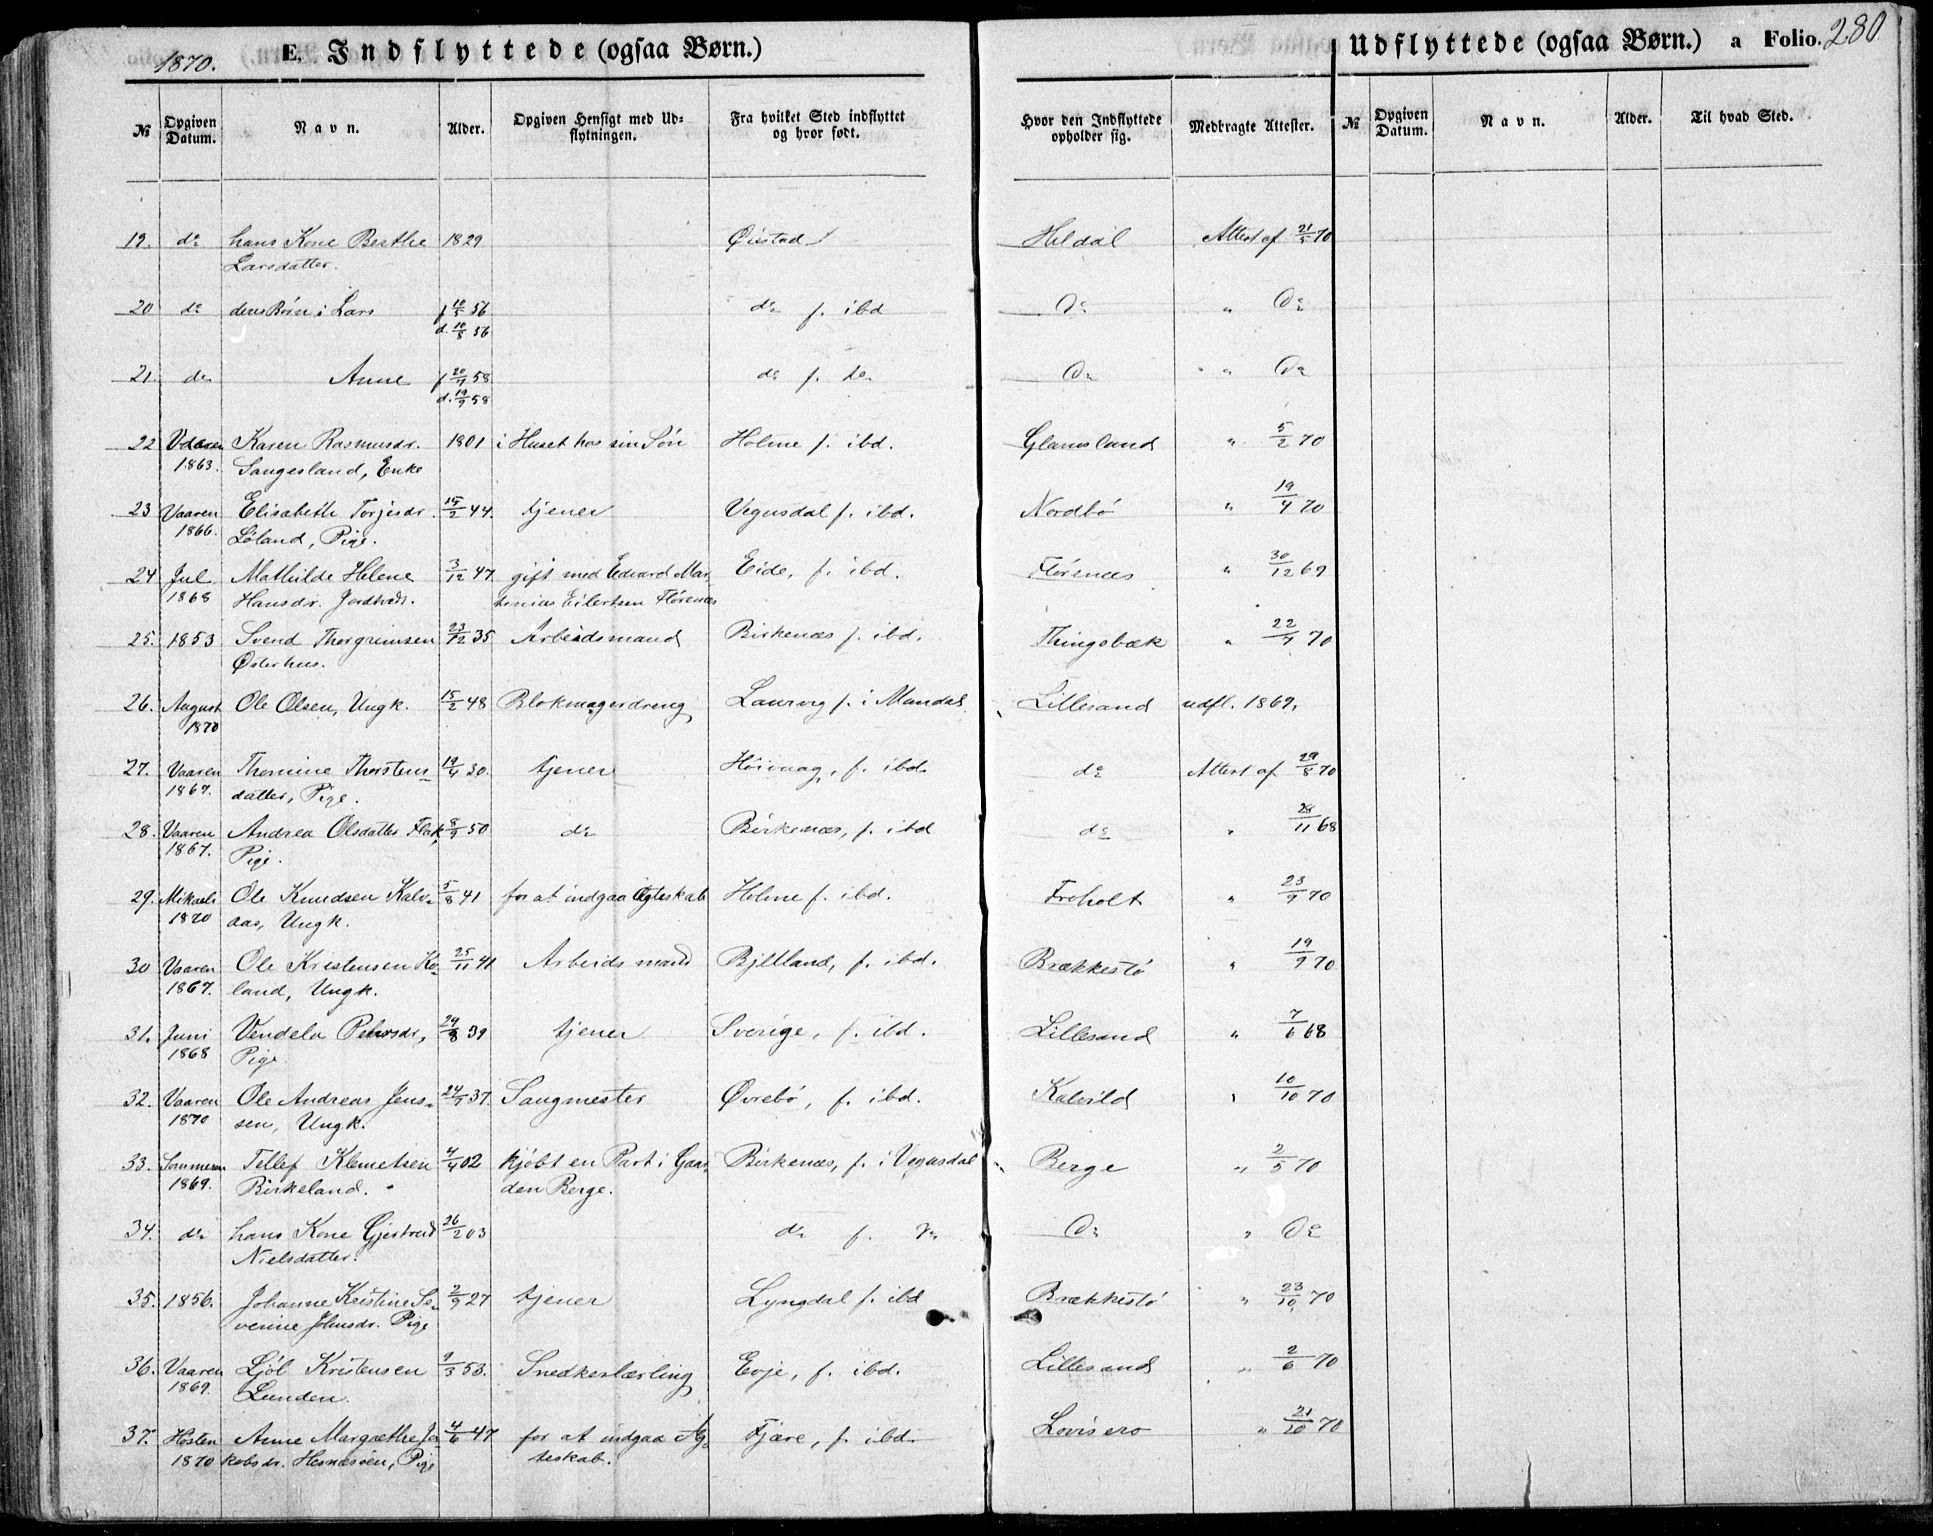 1870.
E. Indflyttede (ogsaa Børn.)
Udflyttede (ogsaa Børn.) a Folio. 280
№ Opgiven Datum. Navn. Alder. Opgiven Hensigt med Udflytningen. Fra hvilket Sted indflyttet og hvor født. Hvor den Indflyttede opholder sig. Medbragte Attester. № Opgiven Datum. Navn. Alder. Til hvad Sted.
19. do hans Kone Berthe 1829 Øiestad Heldal Attest af 21/5 70
Larsdatter.
20 do deres Børn: Lars f 10/5 56 do f. ibd do " do
d. 18/8 56
21. do Anne f 20/7 58 do f. do do " do
d. 19/9 58
22 Vaaren Karen Rasmusdr. 1801 i Huset hos sin Søn Holme f. ibd. Glamsland " 5/2 70
1863. Sangesland, Enke
23 Vaaren Elisabeth Torjesdr. 15/2 44. tjener Vegusdal f. ibd. Nordbø " 19/4 70
1866. Løland, Pige.
24 Jul Mathilde Helene 3/12 47. gift med Edvard Mar- Eide, f. ibd. Flørenæs " 30/12 69
1868 Hansdr. tinius Eilertsen Flørenæs
25. 1853 Svend Thorgrimsen 23/12 35 Arbeidsmand Birkenæs f. ibd. Thingsbæk " 22/7 70
Østerhus.
26. August Ole Olsen, Ungk. 15/2 48 Blokmagerdreng Laurvig f. i Mandal Lillesand udfl. 1869.
1870
27. Vaaren Thomine Thorstens- 19/4 30. tjener Høivaag, f. ibd. do Attest af 29/8 70
1867. datter, Pige.
28. Vaaren Andrea Olsdatter Flak, 8/9 50 do Birkenæs, f. ibd do " 28/11 68
1867. Pige.
29. Mikaeli Ole Knudsen Kalv- 5/8 41 for at indgaa Ægteskab Holme f. ibd. Froholt " 23/9 70
1870 aas, Ungk.
30 Vaaren Ole Kristensen Ko- 25/11 41 Arbeidsmand Bjelland, f. ibd. Brækkestø " 19/9 70
1867. land, Ungk.
31. Juni Vendela Petersdr, 29/8 39 tjener Sverige, f. ibd. Lillesand " 7/6 68
1868 Pige.
32. Vaaren Ole Andreas Jens- 24/7 37. Saugmester Øvrebø, f. ibd. Kalvild " 10/10 70
1870 sen, Ungk.
33. Sommeren Tellef Klemetsen 4/4 02 kjøbt en Part i Gaar- Birkenæs, f. i Vegusdal Berge " 2/5 70
1869. Birkeland. den Berge.
34. do hans Kone Gjertrud 26/2 03 do f. do do " do
Nielsdatter.
35. 1856. Johanne Kristine Se- 2/9 27 tjener Lyngdal f. ibd Brækkestø " 23/10 70
verine Johnsdr. Pige
36. Vaaren Ljøl Kristensen 9/3 53. Snedkerlærling Evje, f. ibd. Lillesand " 2/6 70
1869. Lunden.
37. Høsten Anne Margrethe Ja- 4/6 47 for at indgaa Æg- Fjære, f. ibd. Lovisero " 21/10 70
1870 kobsdr. Hesnæsøen, Pige teskab.